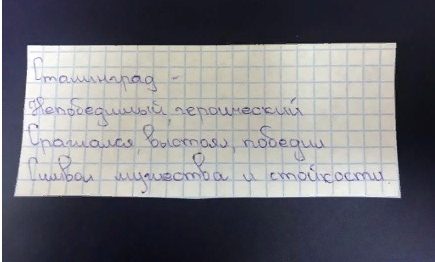 Сталинград -
Непобедимый, героический
Сражался, выстоял, победил
Символ мужества и стойкости